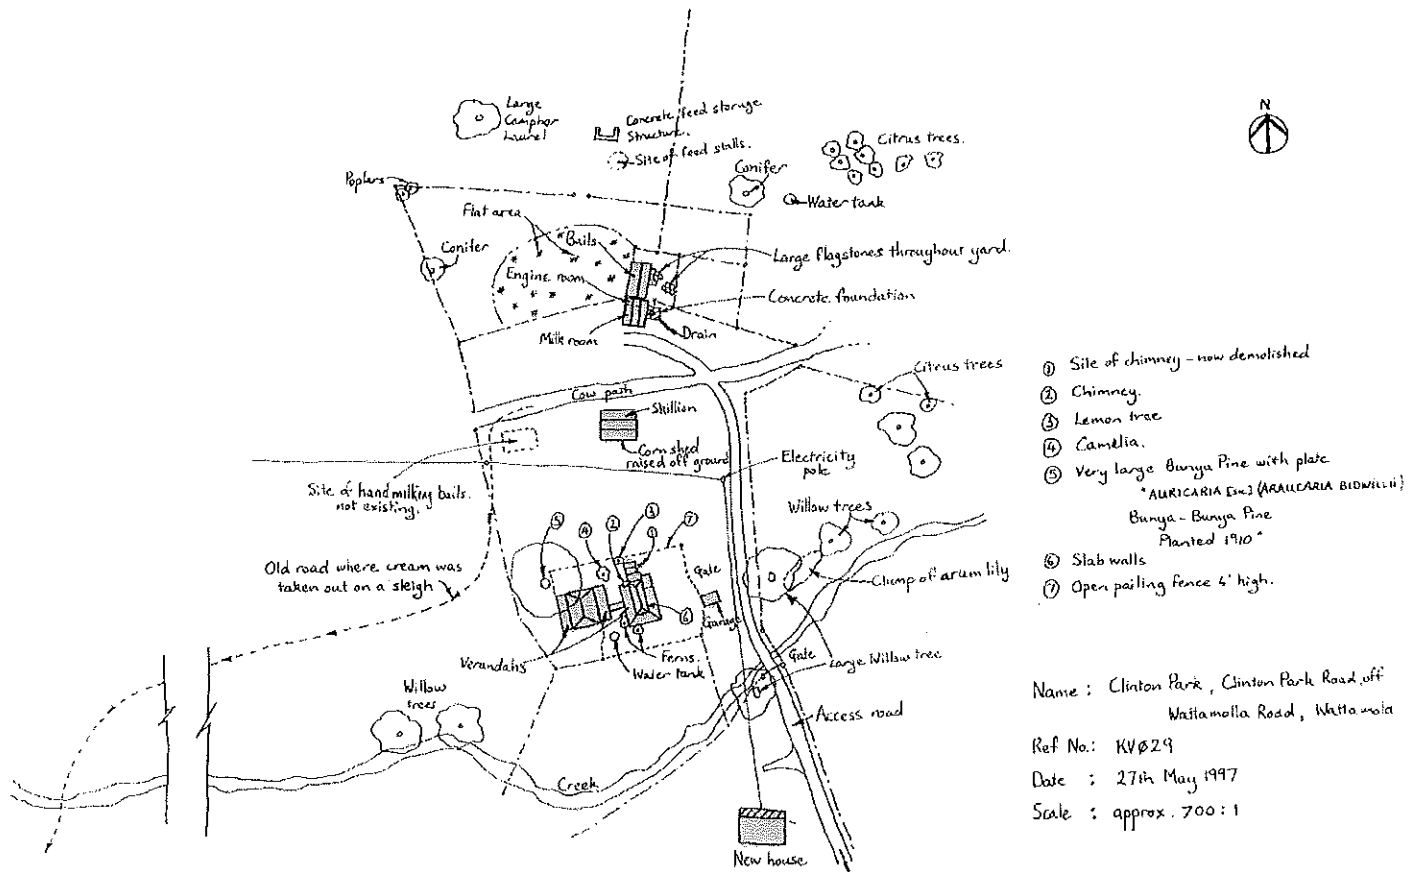 N
Large
Camphor
Laurel
Concrete feed storage
Structure.
Site of feed stalls.
Citrus trees.
Conifer
Water tank
Poplars
Flat area
Bails
Conifer
Engine room
Large flagstones throughout yard.
Concrete foundation
Milk room
Drain
Cow path
Skillion
Corn shed
raised off ground
Citrus trees
Electricity
pole
Site of hand milking bails.
not existing.
Willow trees
5
4
2
3
1
7
6
Old road where cream was
taken out on a sleigh
Gate
Garage
Clump of arum lily
Verandahs
Ferns.
Water tank
Gate
Large Willow tree
Willow
trees
Access road
Creek
New house
1 Site of chimney - now demolished
2 Chimney.
3 Lemon tree
4 Camelia.
5 Very large Bunya Pine with plate
"AURICARIA [sic] (ARAUCARIA BIDWILLII)
Bunya - Bunya Pine
Planted 1910"
6 Slab walls
7 Open pailing fence 4' high.
Name : Clinton Park, Clinton Park Road, off
Wattamolla Road, Wattamola
Ref No.: KVØ29
Date : 27th May 1997
Scale : approx. 700:1